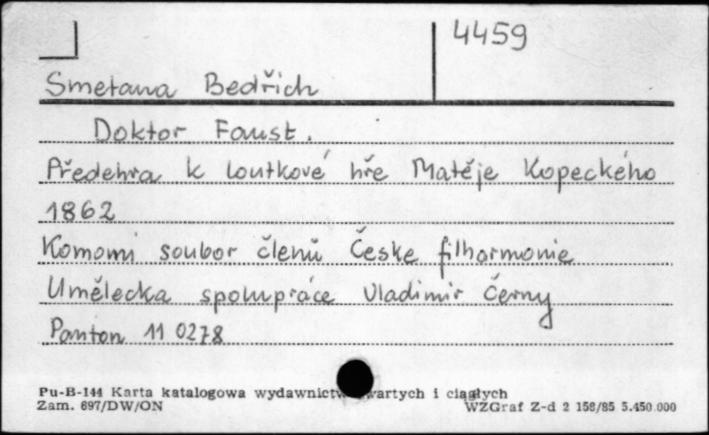 4459
Smetana Bedřich
Doktor Faust.
Předehra k loutkové hře Matěje Kopeckého
1862
Komorni soubor členů České filharmonie
Umělecka spolupráce Vladimir Černy
Panton 11 0278
Pu-B-144 Karta katalogowa wydawnictw zwartych i ciągłych
Zam. 697/DW/ON WZGraf Z-d 2 158/85 5.450.000